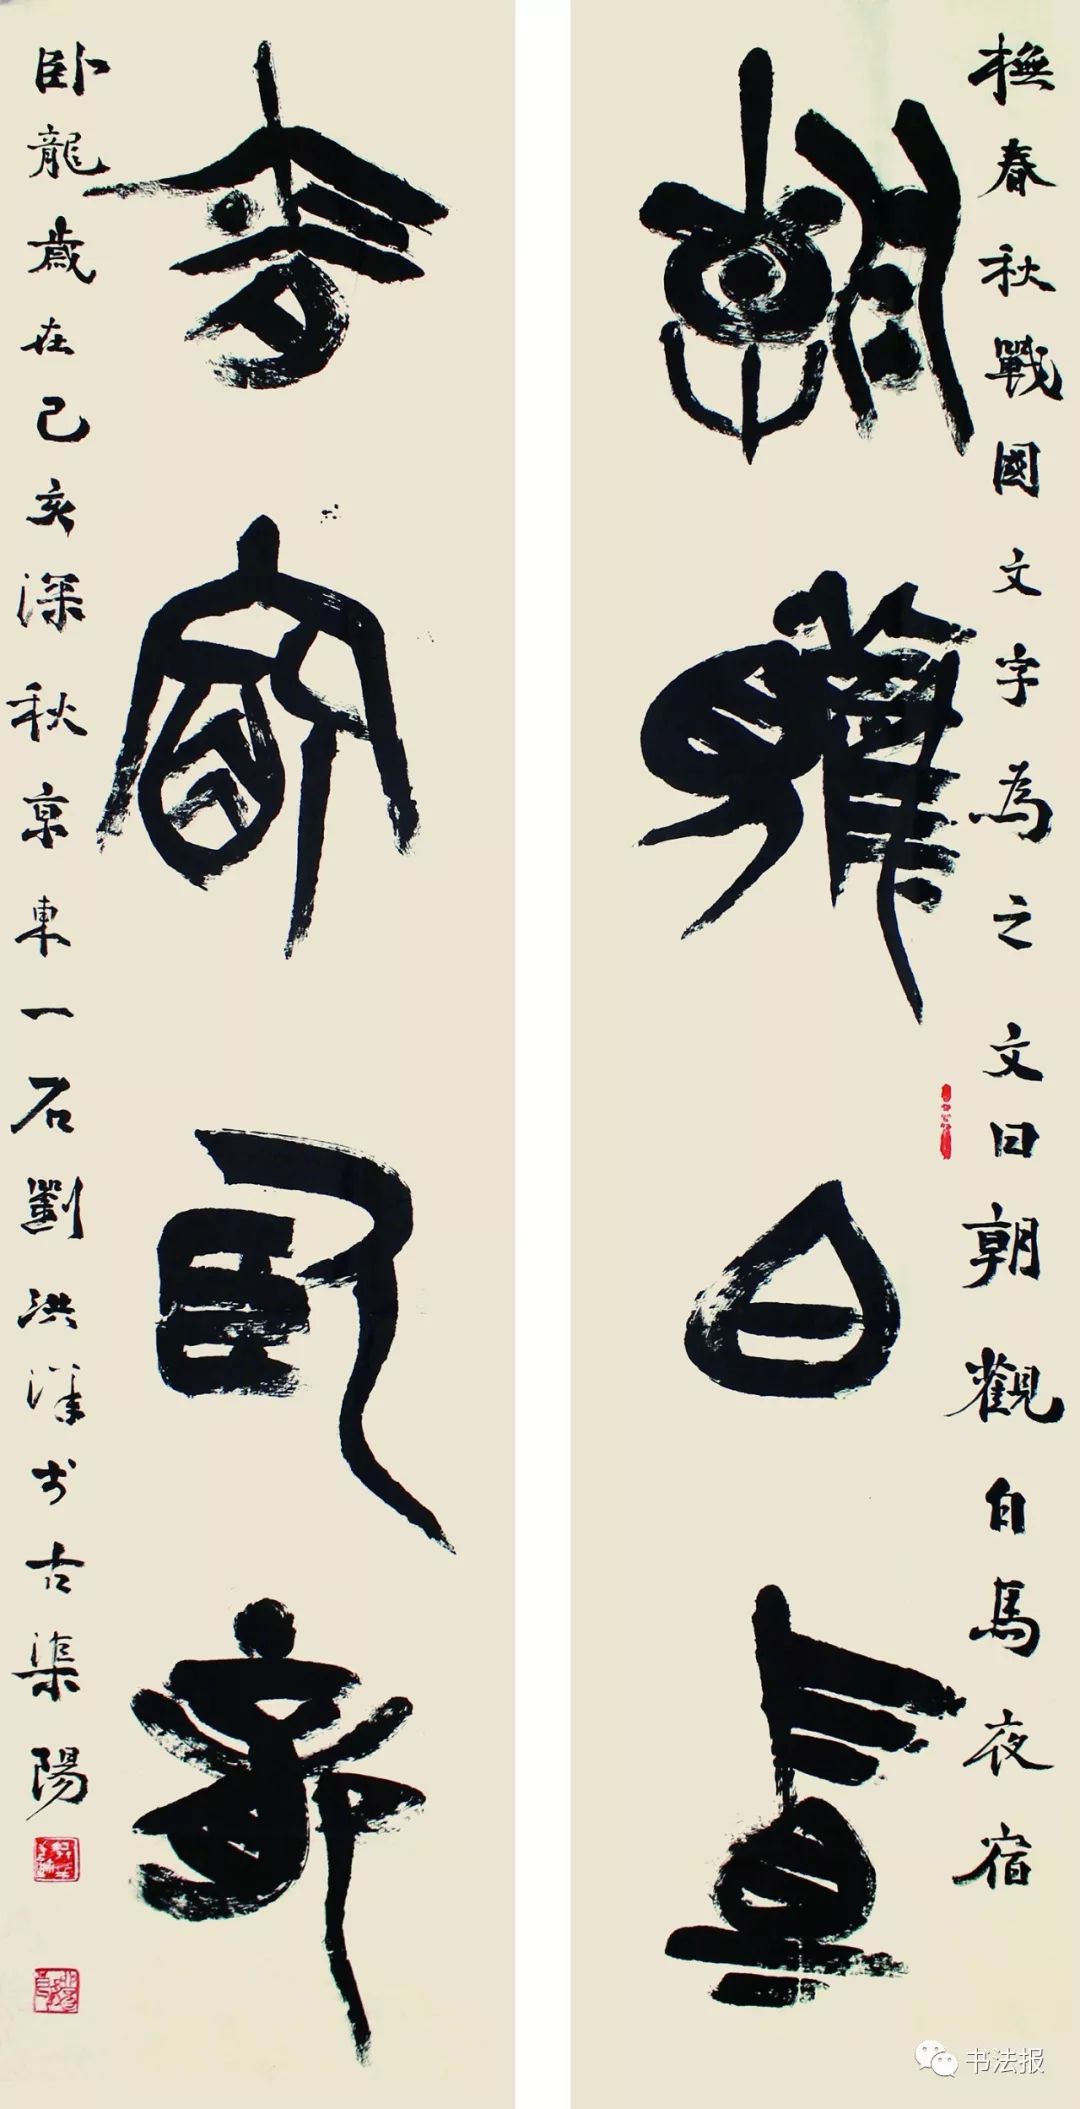 橅春秋戰國文字為之文曰朝觀白馬夜宿
朝觀白馬
夜宿臥龍
卧龍歲在己亥深秋京東一石劉洪洋於古渠陽
书法报